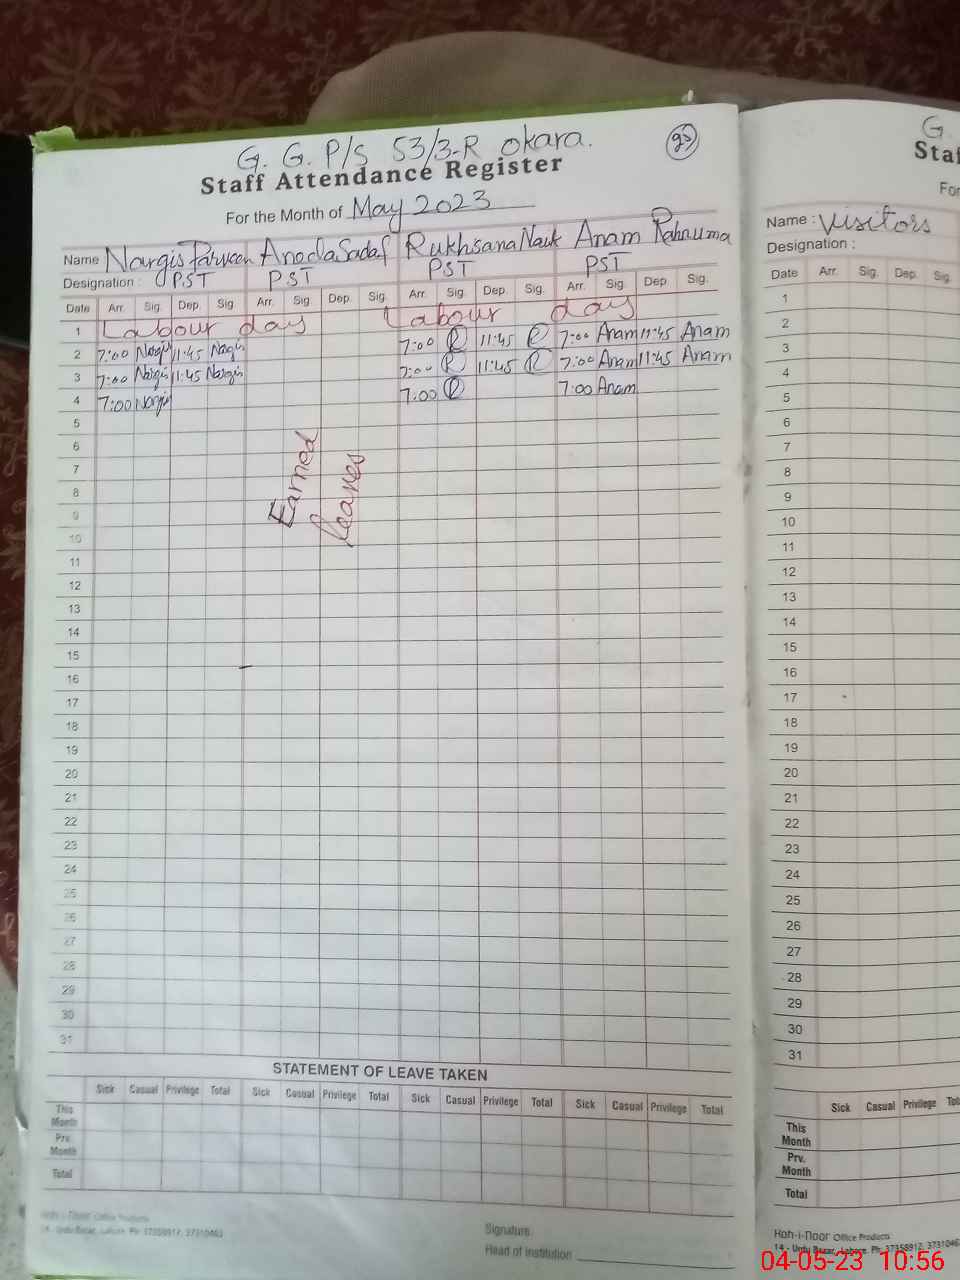 G. G. P/S 53/3-R Okara.
Staff Attendance Register
For the Month of May 2023
Name Nargis Parveen Anoda Sadaf Rukhsana Anam Rahnuma
Designation : PST PST PST PST
Date Arr. Sig. Dep. Sig. Arr. Sig. Dep. Sig. Arr. Sig. Dep. Sig. Arr. Sig. Dep. Sig.
1 Labour day Labour day
2 7:00 Nargis 11:45 Nargis 7:00 R 11:45 R 7:00 Anam 11:45 Anam
3 7:00 Nargis 11:45 Nargis 7:00 R 11:45 R 7:00 Anam 11:45 Anam
4 7:00 Nargis 7:00 R 7:00 Anam
5
6
7
8
9
10
Earned
leaves
11
12
13
14
15
16
17
18
19
20
21
22
23
24
25
26
27
28
29
30
31
STATEMENT OF LEAVE TAKEN
Sick Casual Privilege Total Sick Casual Privilege Total Sick Casual Privilege Total Sick Casual Privilege Total
This
Month
Prv.
Month
Total
Koh-i-Noor Office Products
14 - Urdu Bazar, Lahore. Ph: 37358912, 37310463
Signature
Head of Institution
G.
Name : Visitors
Designation :
Date Arr. Sig. Dep. Sig.
1
2
3
4
5
6
7
8
9
10
11
12
13
14
15
16
17
18
19
20
21
22
23
24
25
26
27
28
29
30
31
Sick Casual Privilege
This
Month
Prv.
Month
Total
Koh-i-noor Office Products
14 - Urdu Bazar, Lahore. Ph: 37358912, 3731046
04-05-23 10:56